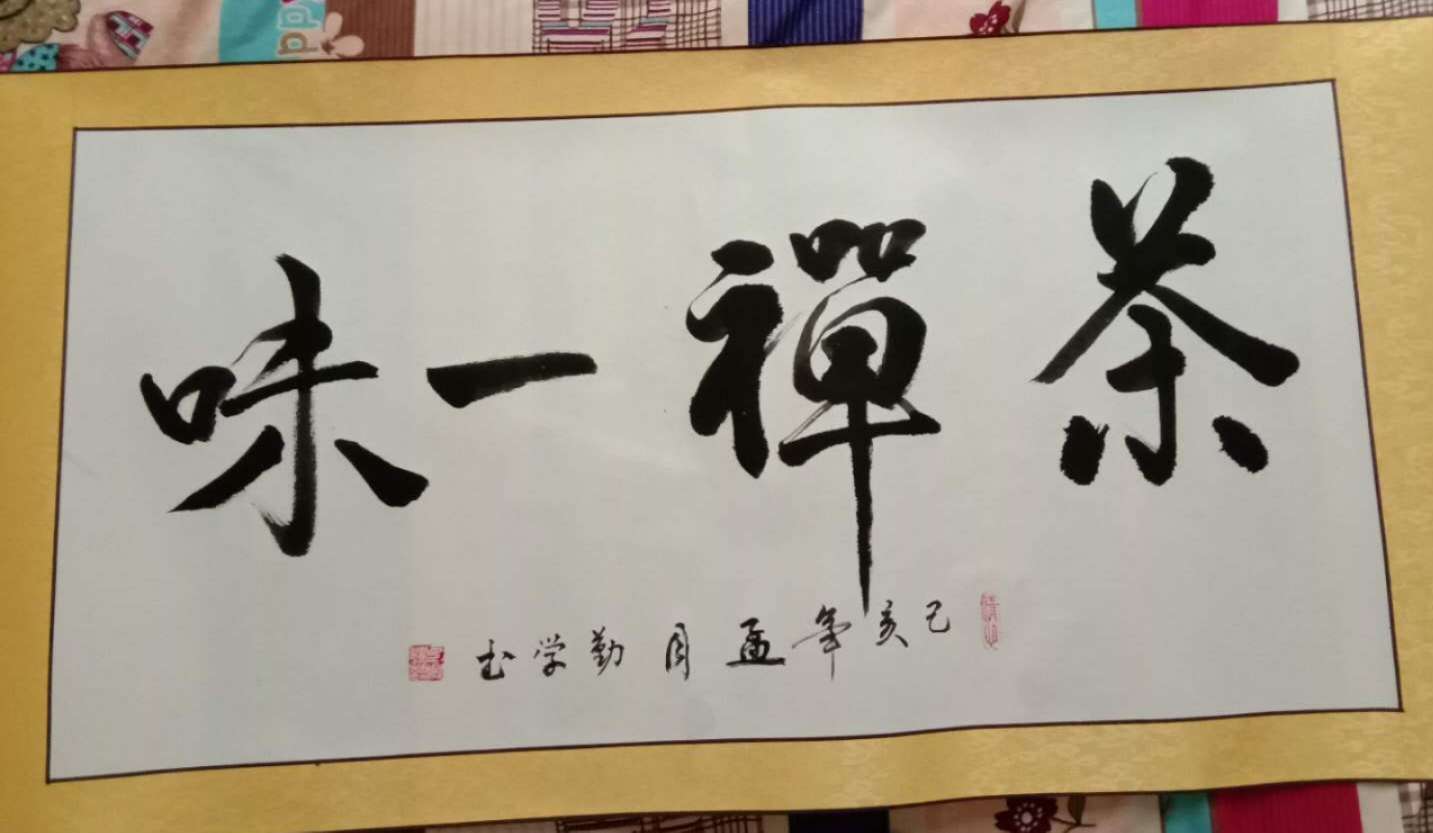 茶禪一味
己亥年孟月勤学书